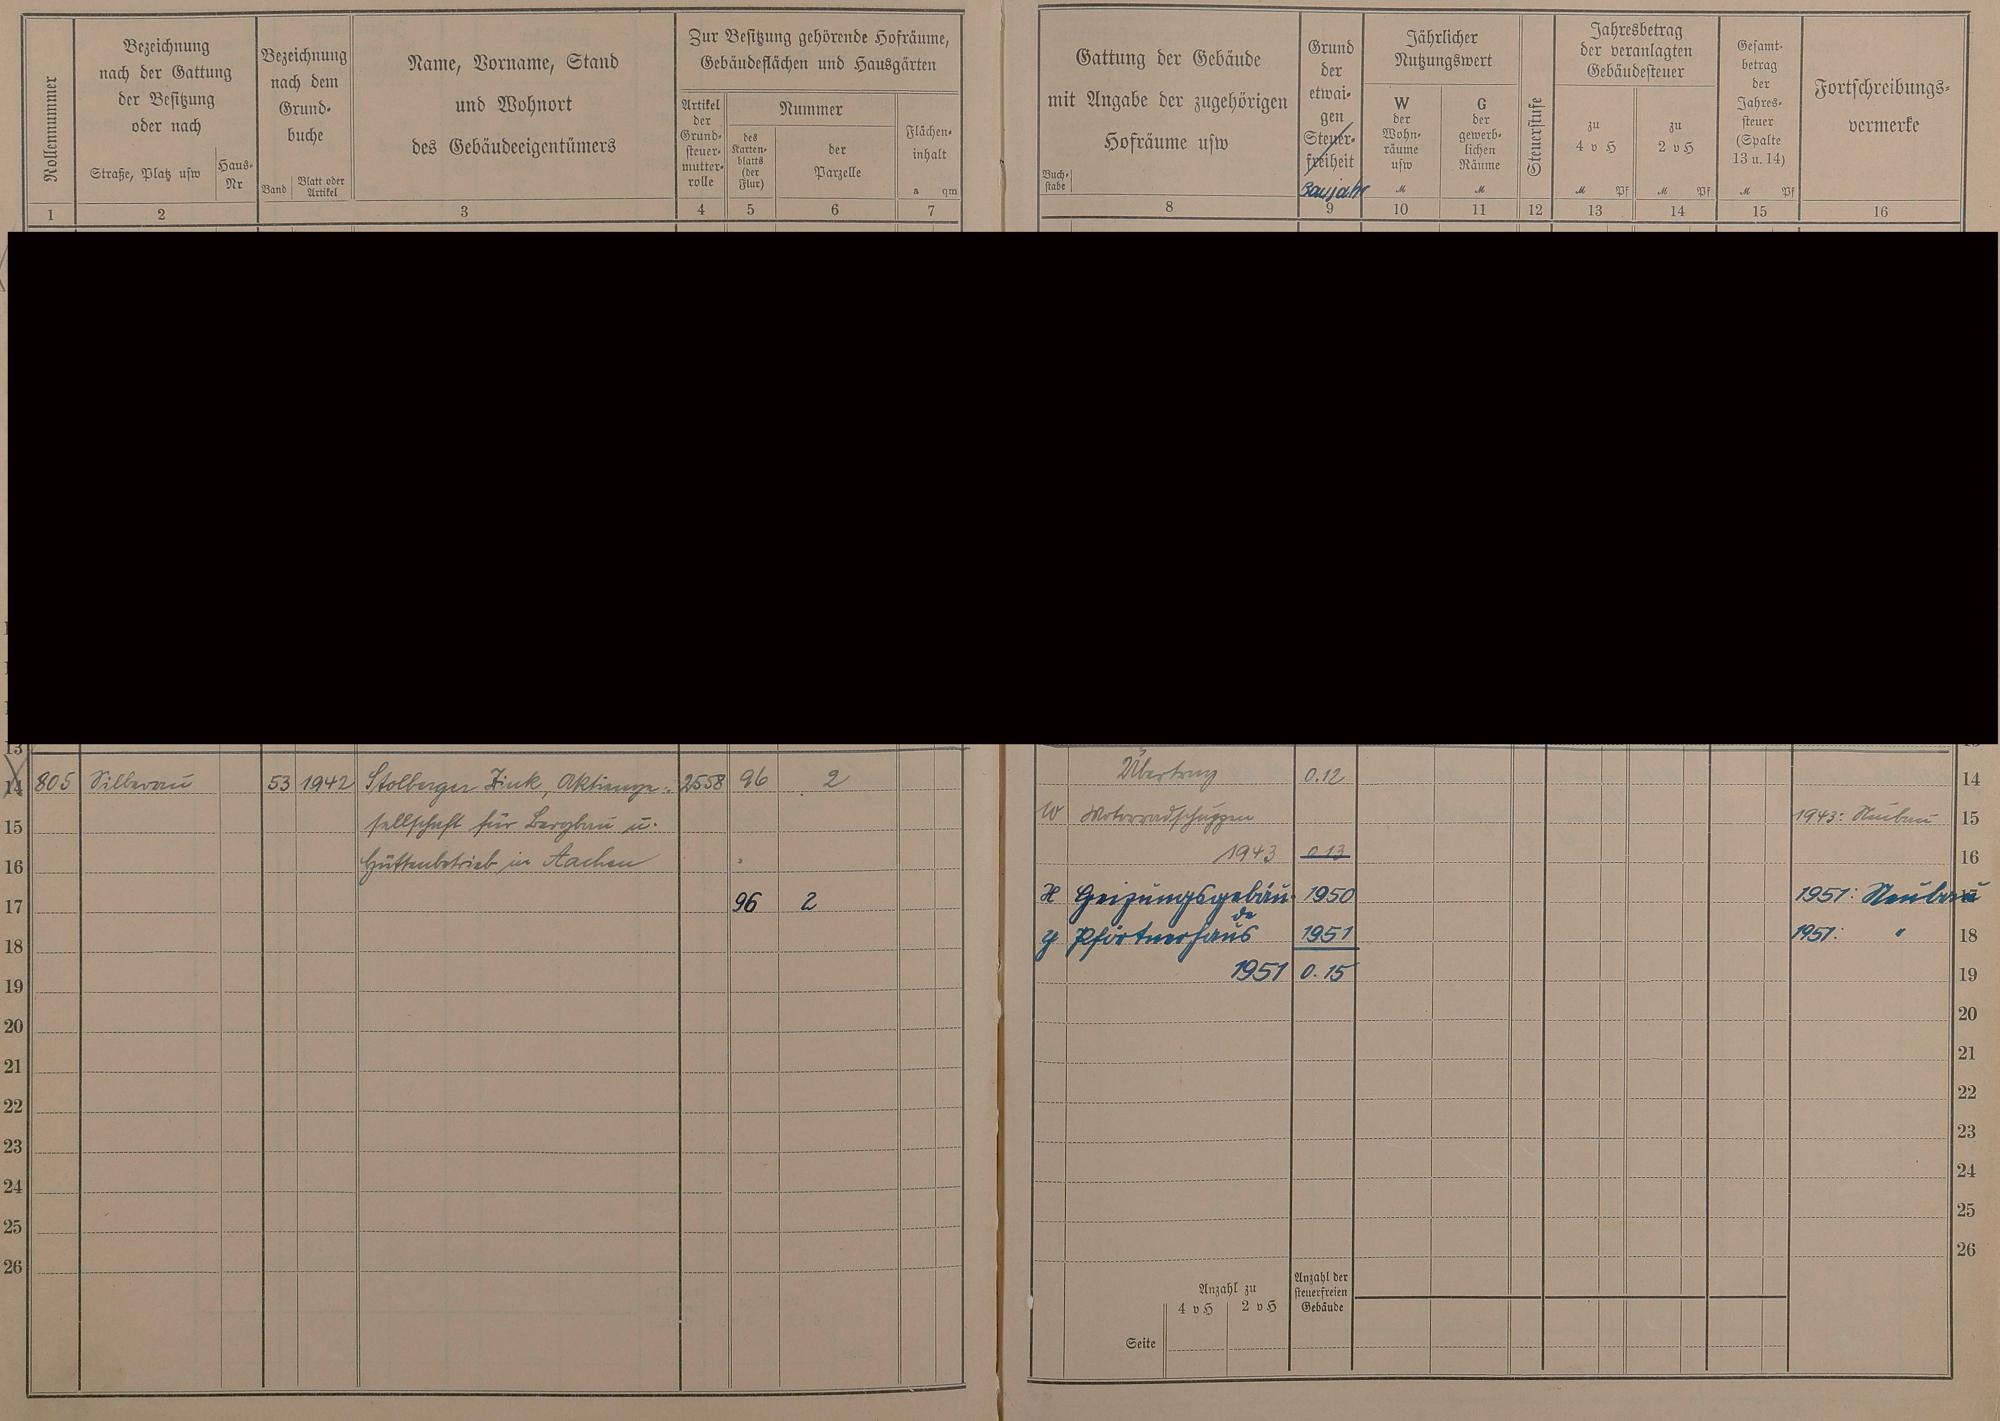 Rollennummer
Bezeichnung
nach der Gattung
der Besitzung
oder nach
Straße, Platz usw
Haus-
Nr
Bezeichnung
nach dem
Grund-
buche
Band
Blatt oder
Artikel
Name, Vorname, Stand
und Wohnort
des Gebäudeeigentümers
Zur Besitzung gehörende Hofräume,
Gebäudeflächen und Hausgärten
Artikel
der
Grund-
steuer-
mutter-
rolle
Nummer
des
Karten-
blatts
(der
Flur)
der
Parzelle
Flächen-
inhalt
a qm
1 2 3 4 5 6 7
Gattung der Gebäude
mit Angabe der zugehörigen
Hofräume usw
Buch-
stabe
Grund
der
etwai-
gen
Steuer-
freiheit
Baujahr
Jährlicher
Nutzungswert
W
der
Wohn-
räume
usw
M
G
der
gewerb-
lichen
Räume
M
Steuerstufe
Jahresbetrag
der veranlagten
Gebäudesteuer
zu
4 v H
M Pf
zu
2 v H
M Pf
Gesamt-
betrag
der
Jahres-
steuer
(Spalte
13 u. 14)
M Pf
Fortschreibungs-
vermerke
8 9 10 11 12 13 14 15 16
13
14 805 Silberau 53 1942 Stolberger Zink, Aktienge- 2558 96 2
15 sellschaft für Bergbau u.
16 Hüttenbetrieb in Aachen
17 96 2
18
19
20
21
22
23
24
25
26
Übertrag 0.12 14
W Motorradschuppen 1943: Neubau 15
1943 0.13 16
X Heizungsgebäu- 1950 1951: Neubau 17
de
Y Pförtnerhaus 1951 1951: " 18
1951 0.15 19
20
21
22
23
24
25
26
Anzahl zu
4 v H 2 v H
Anzahl der
steuerfreien
Gebäude
Seite